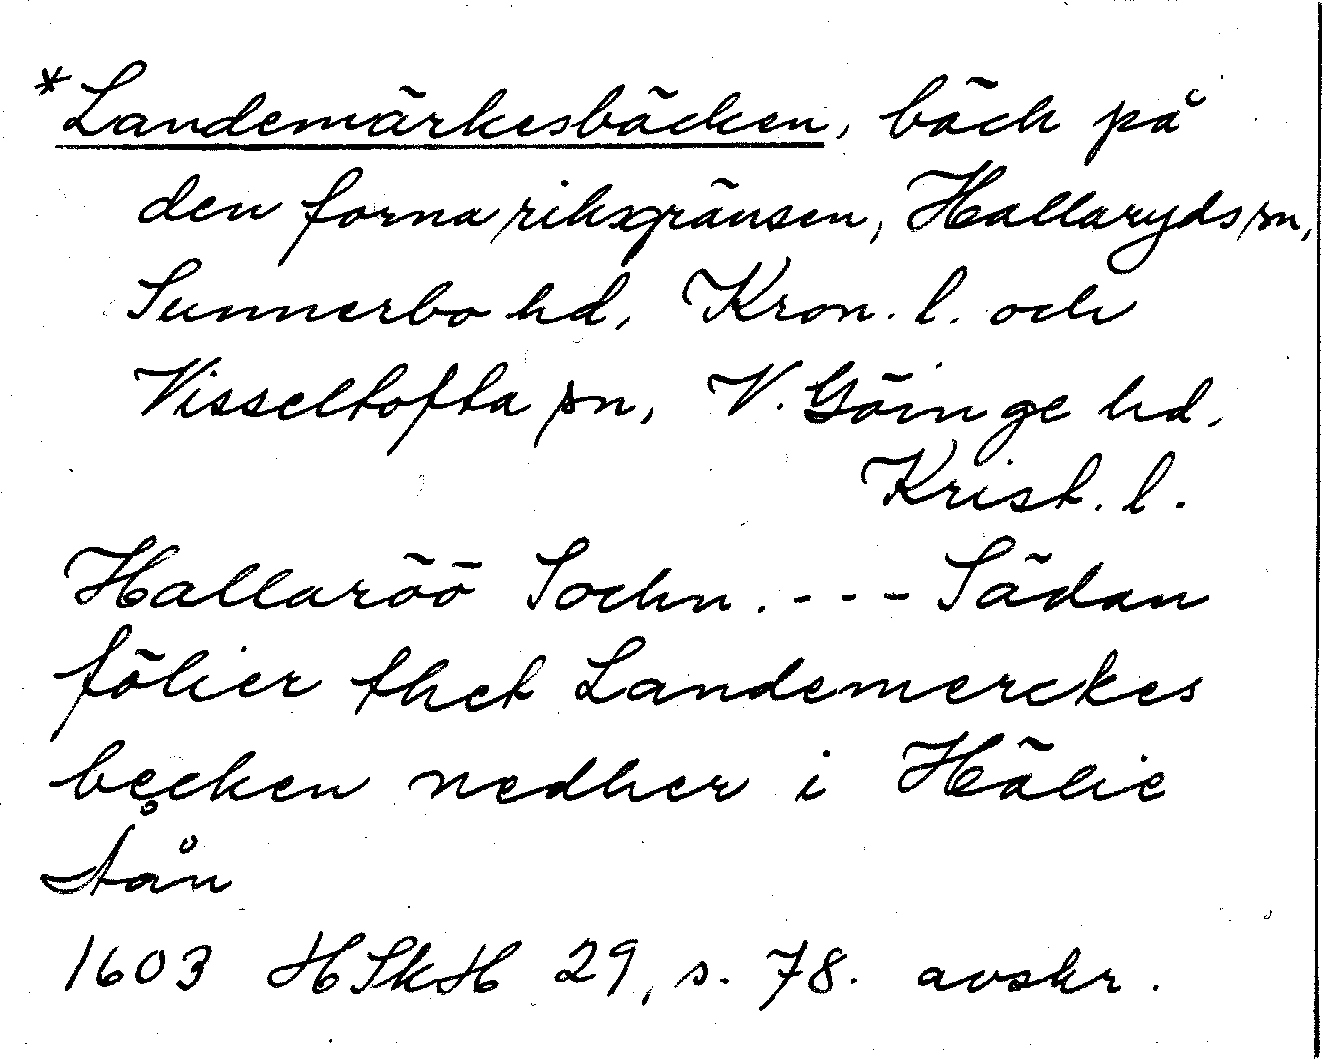 *Landemärkesbäcken, bäck på
den forna riksgränsen, Hallaryds sn,
Sunnerbo hd, Kron. l. och
Visseltofta sn, V. Göinge hd,
Krist. l.
Hallaröö Sochn. - - - Sädan
fölier thet Landemerckes
becken nedher i Hälie
Åån
1603 HSkH 29, s. 78. avskr.